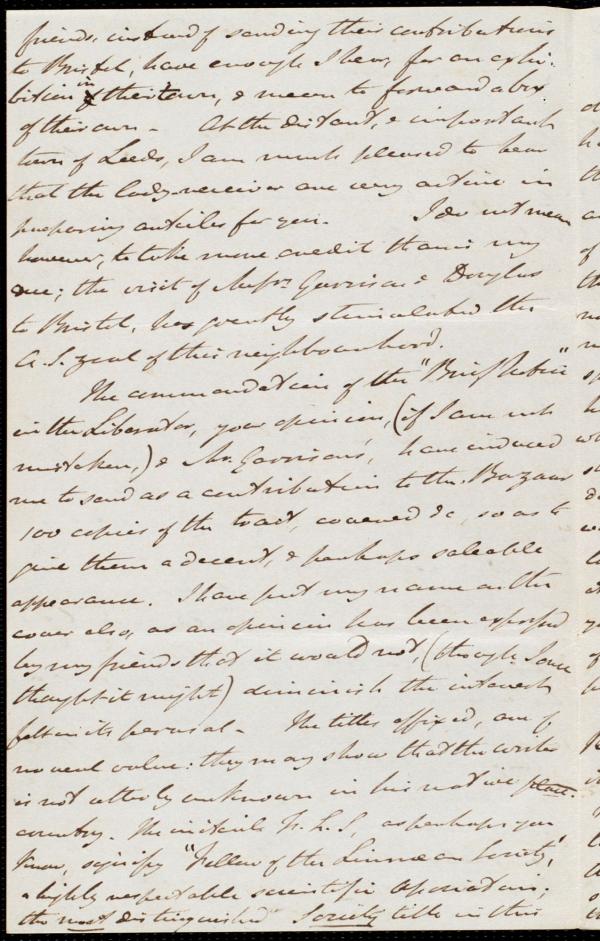 friends, instead of sending their contributions
to Bristol, have enough I hear, for an exhi-
bition in their town, & mean to forward a box
of their own - At the distant, & important
town of Leeds, I am much pleased to hear
that the lady-receiver are very active in
preparing articles for you. I do not mean
however, to take more credit than is my
due; the visit of Messrs. Garrison & Douglas
to Bristol, has greatly stimulated the
A. S. zeal of this neighbourhood.
The commendation of the "Brief Notice"
in the Liberator, your opinion, (if I am not
mistaken,) & Mr. Garrison's, have induced
me to send as a contribution to the Bazaar
100 copies of the tract, covered &c, so as to
give them a decent, & perhaps saleable
appearance. I have put my name on the
cover also, as an opinion has been expressed
by my friends that it would not, (though I once
thought it might) diminish the interest
felt in its perusal - The titles affixed, are of
no real value: they may show that the writer
is not utterly unknown in his native place.
country. The initials F. L. S, as perhaps you
know, signify "Fellow of the Linnæan Society",
a highly respectable scientific Association;
the most distinguished Society title in this